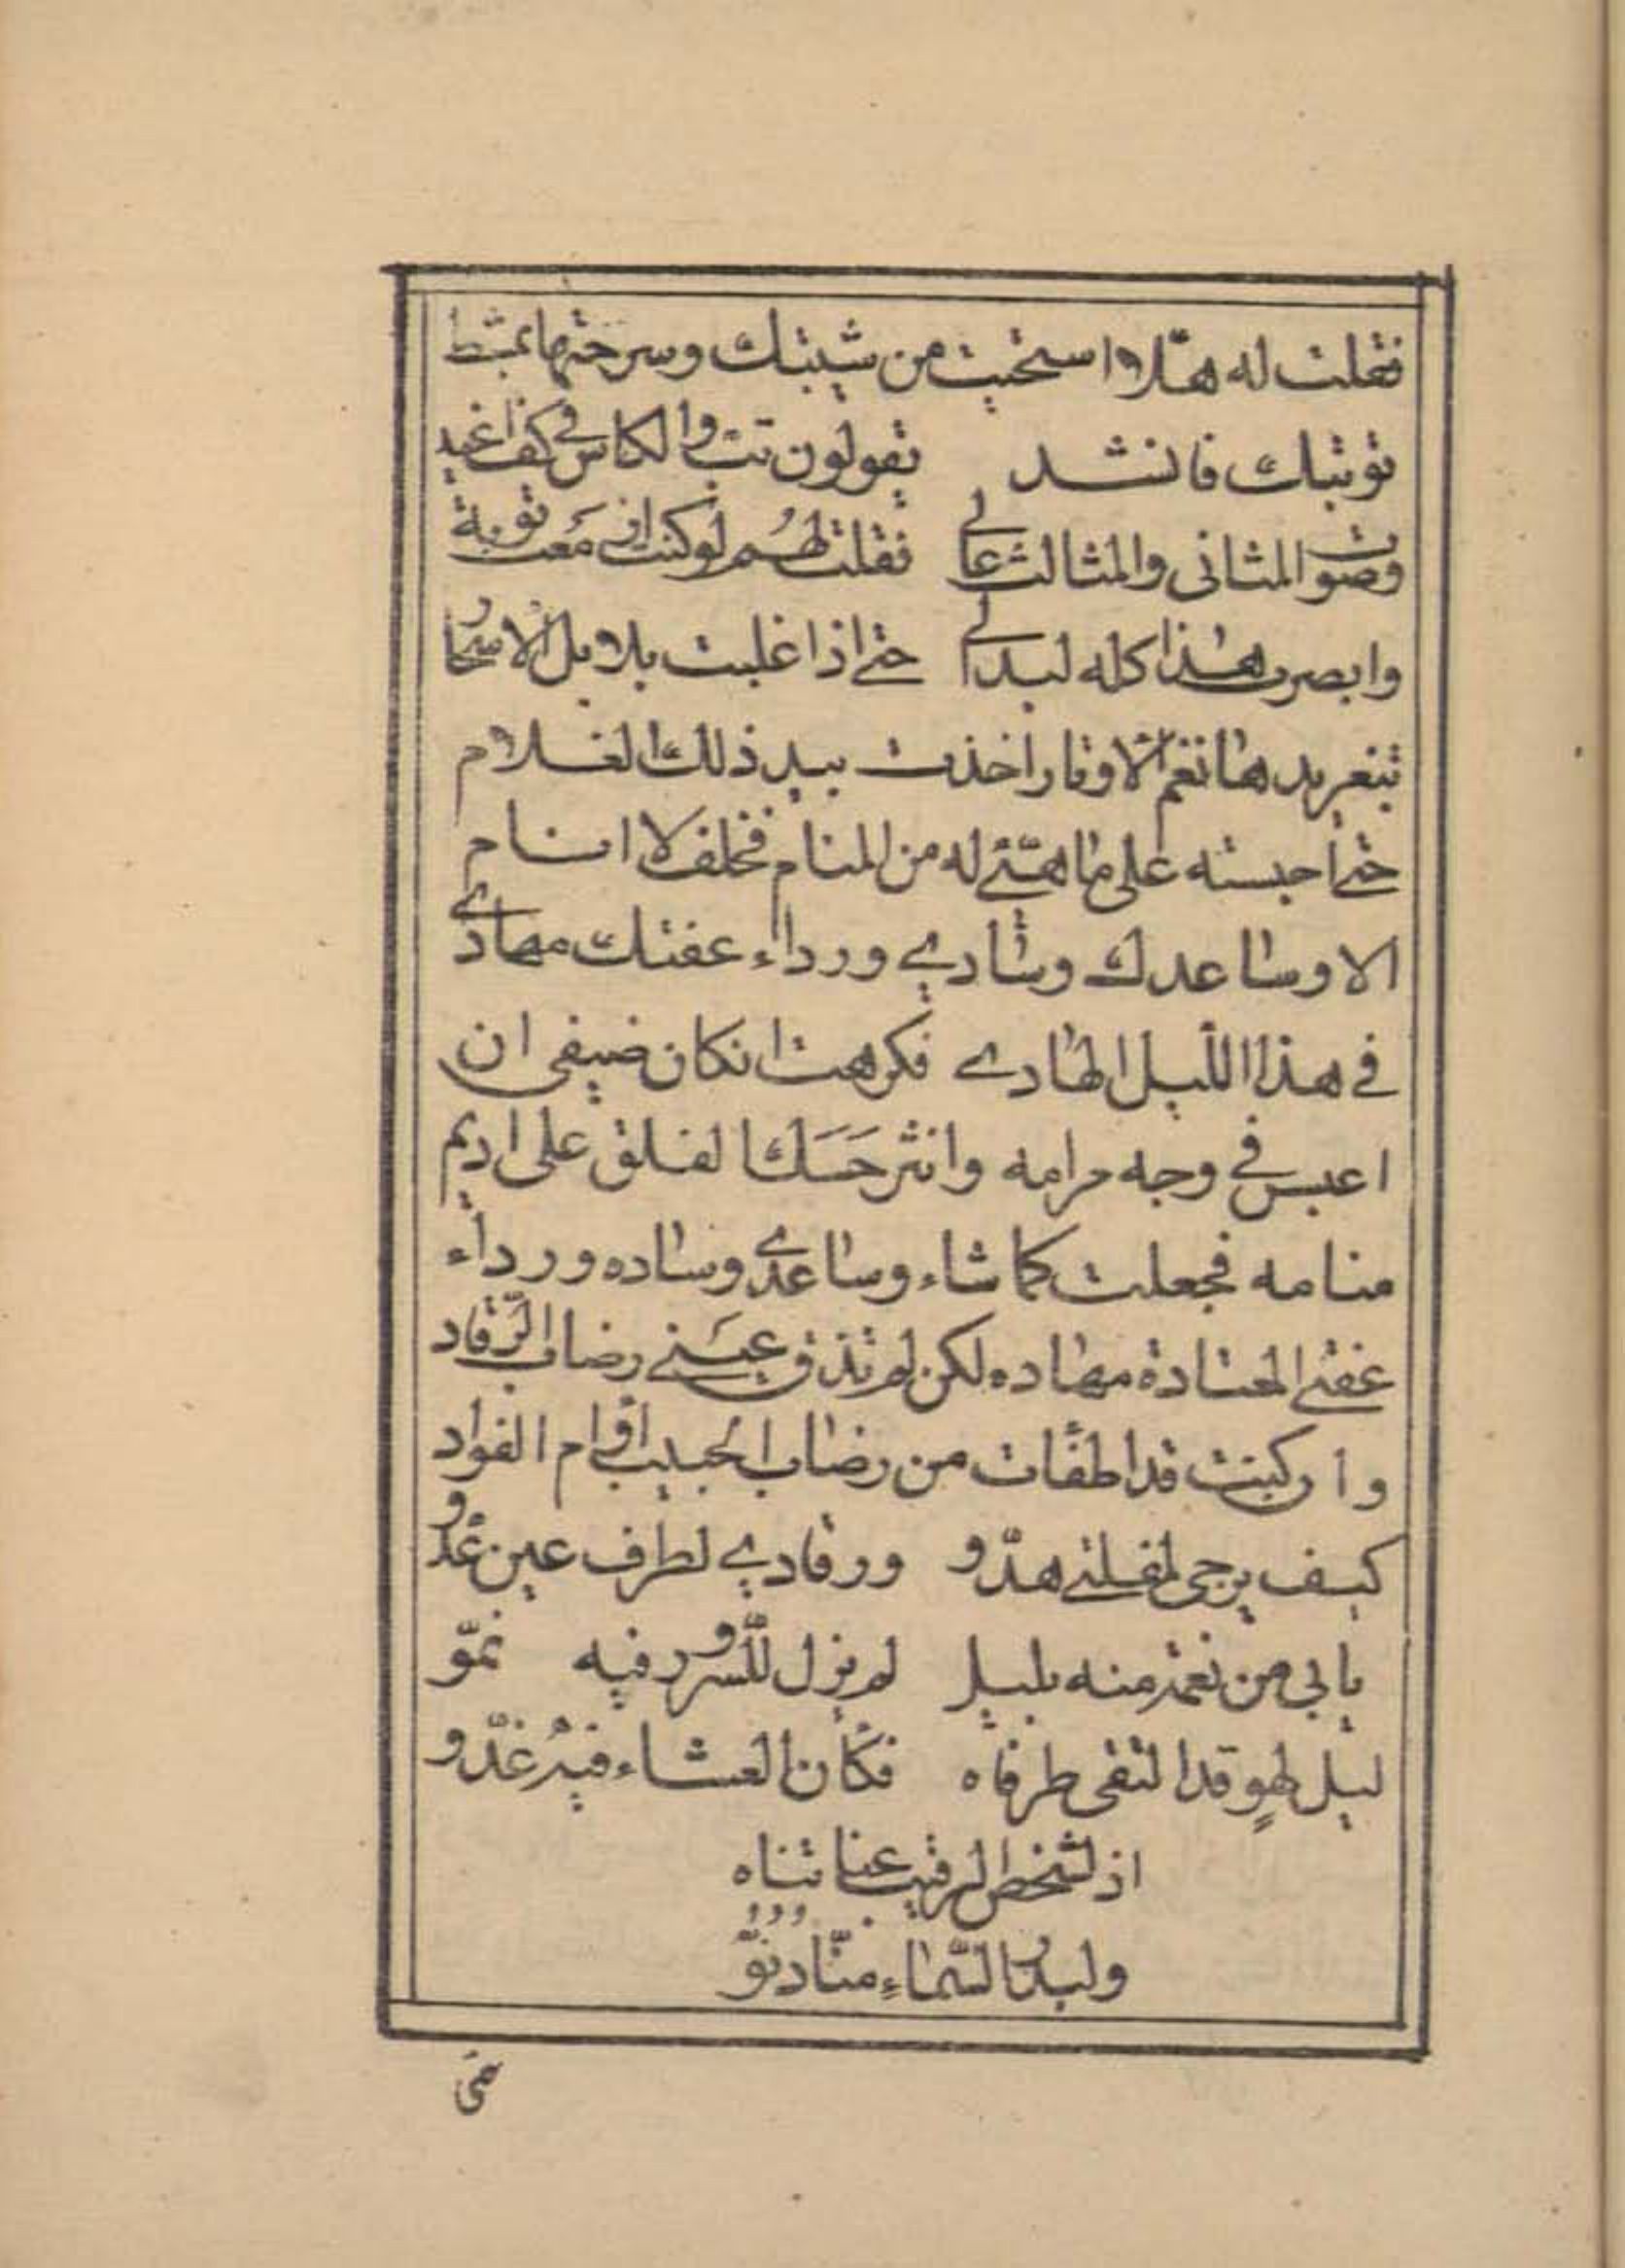 فقلت له هلّا استحيت من شيبتك وسرحتها بمشط
توبتك فانشد يقولون تب والكاس في كف اغيد
وصوت المثاني والمثالث عالي فقلت لهُم لو كنت ازمَعت توبة
وابصرت هذا كله لبدا لي حتى اذا غلبت بلابل الاسحار
بتغريدها نغم الاوتار اخذت بيد ذلك الغلام
حتى احبسته على ما هيّئ له من المنام فحلف لا انام
الا وساعدك وسادي ورداء عفتك مهادي
في هذا الليل الهادي فكرهت ان كان ضيفي ان
اعبس في وجه مرامه وانثر حَسَكا لقلق على اديم
منامه فجعلت كما شاء وساعدي وساده ورداء
عفتي المعتادة مهاده لكن لم تذق عيَني رضاب الرّقاد
وان كنت قد اطفأت من رضاب الحبيب اوام الفواد
كيف يرجى لمقلتي هدّو ورقادي لطرف عين عدُو
بابي من نعمت منه بليل لم يزل للسّرور فيه نموّ
ليل لهوٍ قد التقى طرفاه فكأن العشاء فيهُ غدّو
اذ لشخص الرقيب عنا تناه
ولبدرُ السّماءِ منّا دنُوّ